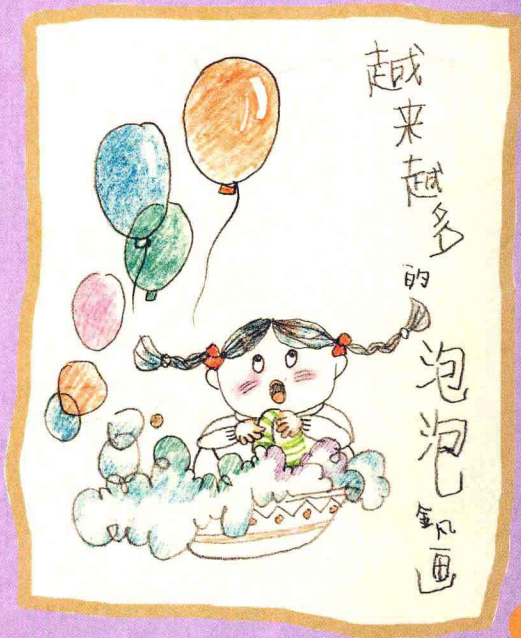 越来越多的泡泡
钒画